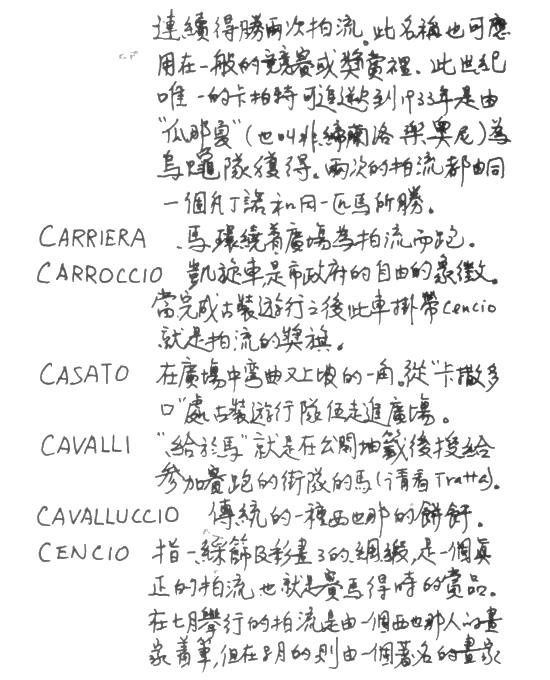 連續得勝兩次拍流。此名稱也可應
用在一般的競賽或獎賞裡。此世紀
唯一的卡拍特可追溯到1933年是由
"瓜那夏"(也叫非締蘭洛 與奧尼)為
烏龜隊獲得。兩次的拍流都由同
一個凡丁諾和同一匹馬所勝。
CARRIERA 馬環繞着廣場為拍流而跑。
CARROCCIO 凱旋車,是市政府的自由的象徵。
當完成古裝遊行之後此車掛帶Cencio
就是拍流的獎旗。
CASATO 在廣場中彎曲又上坡的一角。從"卡撒多
口"處古裝遊行隊伍走進廣場。
CAVALLI "給於馬"就是在公開抽籤後授給
參加賽跑的街隊的馬(请看Tratta)。
CAVALLUCCIO 傳統的一種西也那的餅釬。
CENCIO 指一綵飾及彩畫了的綢緞,是一個真
正的拍流也就是賽馬得時的賞品。
在七月舉行的拍流是由一個西也那人的畫
家着筆,但在8月的則由一個著名的畫家